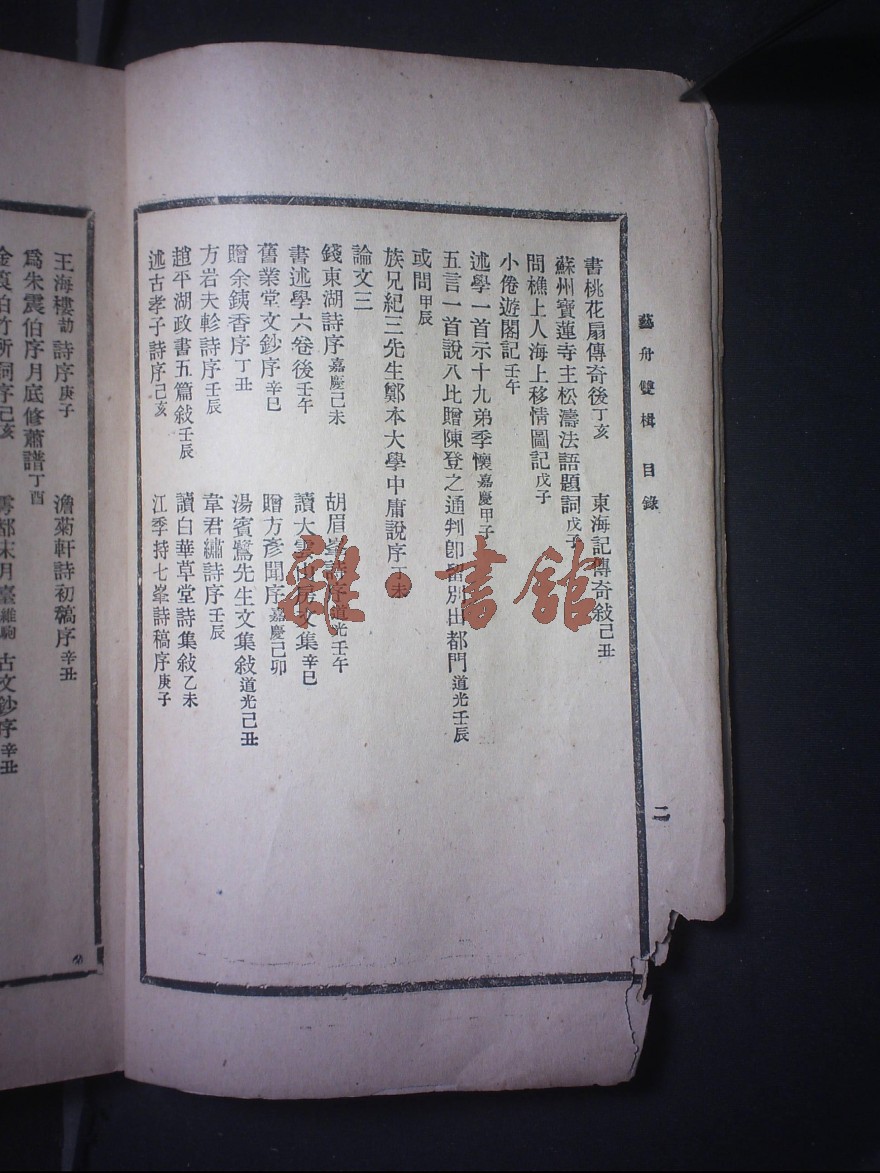 藝舟雙楫 目錄
二
書桃花扇傳奇後丁亥 東海記傳奇敍己丑
蘇州寶蓮寺主松濤法語題詞戊子
問樵上人海上移情圖記戊子
小倦遊閣記壬午
述學一首示十九弟季懷嘉慶甲子
五言一首說八比贈陳登之通判卽留別出都門道光壬辰
或問甲辰
族兄紀三先生鄭本大學中庸說序丁未
論文三
錢東湖詩序嘉慶己未 胡眉峯詩序道光壬午
書述學六卷後壬午 讀大雲山房文集辛巳
舊業堂文鈔序辛巳 贈方彥聞序嘉慶己卯
贈余銕香序丁丑 湯賓鷺先生文集敍道光己丑
方岩夫軫詩序壬辰 韋君繡詩序壬辰
趙平湖政書五篇敍壬辰 讀白華草堂詩集敍乙未
述古孝子詩序己亥 江季持七峯詩稿序庚子
王海樓劼詩序庚子 澹菊軒詩初稿序辛丑
爲朱震伯序月底修蕭譜丁酉
金筤伯竹所詞序己亥 雩都宋月臺維駒古文鈔序辛丑
雜·書館